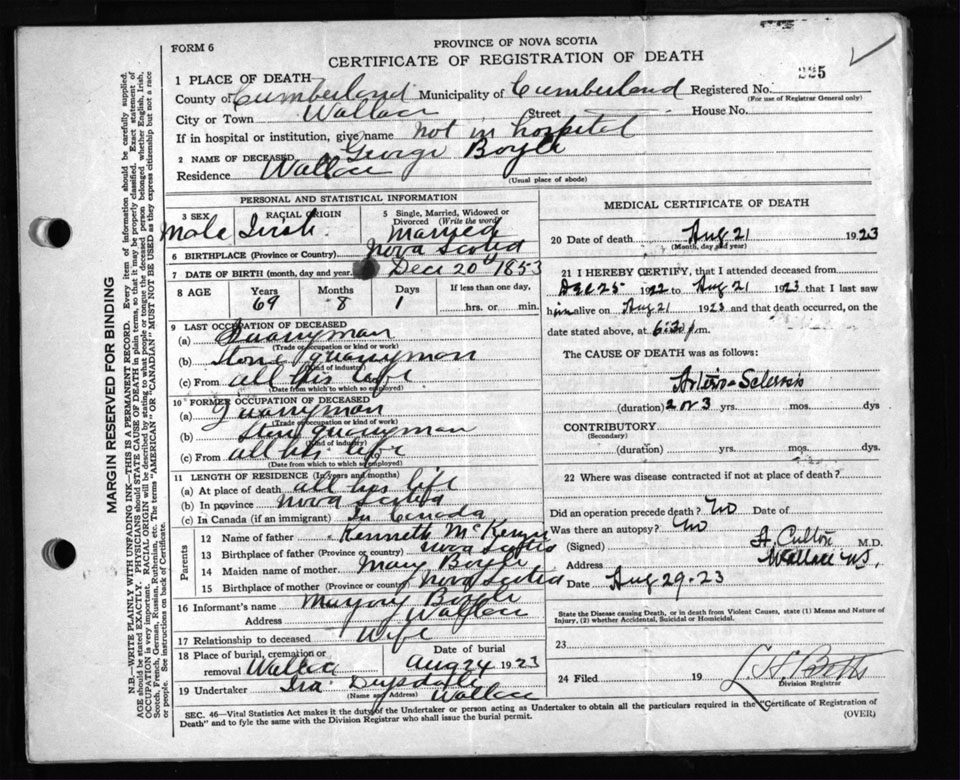 PROVINCE OF NOVA SCOTIA
FORM 6
CERTIFICATE OF REGISTRATION OF DEATH
225
1 PLACE OF DEATH
County of Cumberland Municipality of Cumberland Registered No.
(For use of Registrar General only)
City or Town Wallace Street House No.
If in hospital or institution, give name not in hospital
2 NAME OF DECEASED George Boyle
Residence Wallace
(Usual place of abode)
PERSONAL AND STATISTICAL INFORMATION
3 SEX Male
RACIAL ORIGIN Irish
5 Single, Married, Widowed or Divorced (Write the word) Married
6 BIRTHPLACE (Province or Country) Nova Scotia
7 DATE OF BIRTH (month, day and year) Dec 20 1853
8 AGE Years 69 Months 8 Days 1 If less than one day, hrs. or min.
9 LAST OCCUPATION OF DECEASED
(a) Quarryman
(Trade or occupation or kind or work)
(b) Stone quarryman
(Kind of industry)
(c) From all his life
(Date from which to which so employed)
10 FORMER OCCUPATION OF DECEASED
(a) Quarryman
(Trade or occupation or kind of work)
(b) Stone quarryman
(Kind of industry)
(c) From all his life 19
(Date from which to which so employed)
11 LENGTH OF RESIDENCE (In years and months)
(a) At place of death all his life
(b) In province Nova Scotia
(c) In Canada (if an immigrant) In Canada
Parents
12 Name of father Kenneth McKenzie
13 Birthplace of father (Province or country) Nova Scotia
14 Maiden name of mother Mary Boyle
15 Birthplace of mother (Province or country) Nova Scotia
16 Informant's name Marjory Boyle
Address Wallace
17 Relationship to deceased Wife
18 Place of burial, cremation or removal Wallace
Date of burial Aug 24 1923
19 Undertaker Ira Drysdale
(Name and Address) Wallace
MEDICAL CERTIFICATE OF DEATH
20 Date of death Aug 21 1923
(Month, day and year)
21 I HEREBY CERTIFY, that I attended deceased from
Dec 25 1922 to Aug 21 1923 that I last saw
him alive on Aug 21 1923 and that death occurred, on the
date stated above, at 6:30 p.m.
The CAUSE OF DEATH was as follows:
Arterio-Sclerosis
(duration) 2 or 3 yrs. mos. dys
CONTRIBUTORY
(Secondary)
(duration) yrs. mos. dys.
22 Where was disease contracted if not at place of death?
Did an operation precede death? No Date of
Was there an autopsy? No
(Signed) M.D.
Address Wallace NS.
Date Aug 29-23
State the Disease causing Death, or in death from Violent Causes, state (1) Means and Nature of
Injury, (2) whether Accidental, Suicidal or Homicidal.
23
24 Filed 19
Division Registrar
SEC. 46—Vital Statistics Act makes it the duty of the Undertaker or person acting as Undertaker to obtain all the particulars required in the "Certificate of Registration of
Death" and to fyle the same with the Division Registrar who shall issue the burial permit.
(OVER)
MARGIN RESERVED FOR BINDING
N.B.—WRITE PLAINLY WITH UNFADING INK—THIS IS A PERMANENT RECORD. Every item of information should be carefully supplied.
AGE should be stated EXACTLY. PHYSICIANS should STATE CAUSE OF DEATH in plain terms, so that it may be properly classified. Exact statement of
OCCUPATION is very important. RACIAL ORIGIN will be described by stating to what people or tongue the deceased person belonged whether English, Irish,
Scotch, French, German, Russian, Ruthenian, etc. The terms "AMERICAN" or "CANADIAN" MUST NOT BE USED as they express citizenship but not a race
or people. See instructions on back of Certificate.